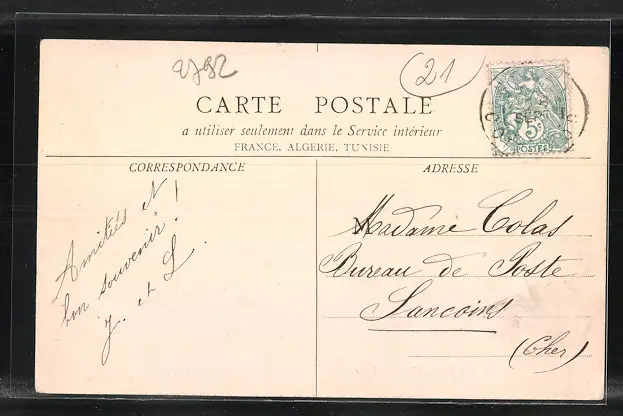 21
CARTE POSTALE
a utiliser seulement dans le Service intérieur
FRANCE, ALGERIE, TUNISIE
5c
POSTES
CORRESPONDANCE
Amitiés et
bon souvenir!
J. et L.
ADRESSE
Madame Colas
Bureau de Poste
Sancoins
(Cher)